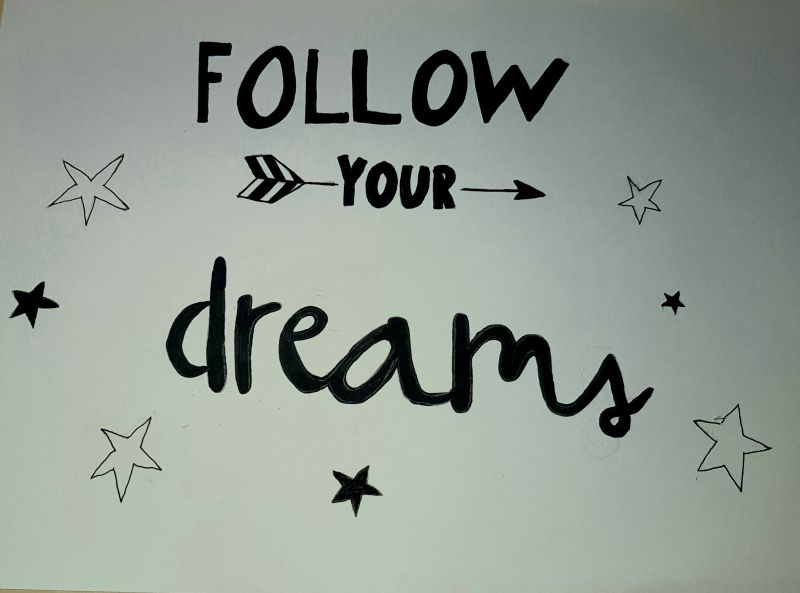 FOLLOW
YOUR
dreams